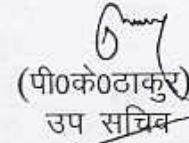 (पी0के0ठाकुर)
उप सचिव